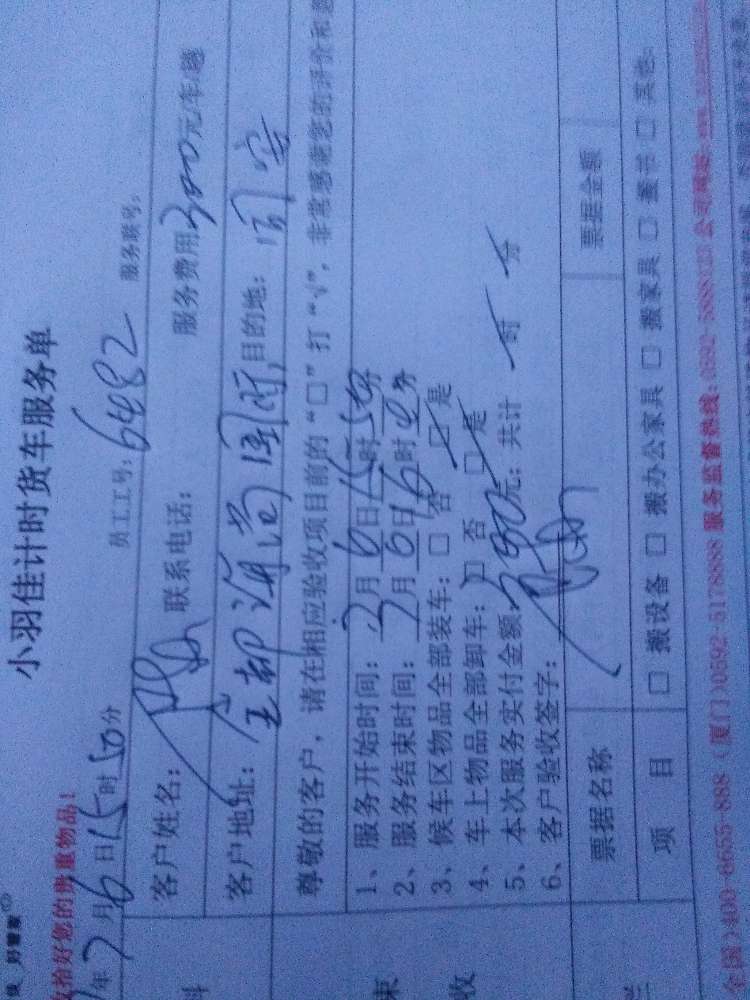 小羽佳计时货车服务单
收拾好您的贵重物品!
年7月6日15时50分 员工工号: 6482 服务联号:
客户姓名: 联系电话: 服务费用300元/车/趟
客户地址: 金都海尚国际 目的地: 同安
尊敬的客户, 请在相应验收项目前的“□”打“√”, 非常感谢您的评价和
1、服务开始时间: 7月6日15时50分
2、服务结束时间: 7月6日16时
3、候车区物品全部装车: □ 否 □ 是
4、车上物品全部卸车: □ 否 □ 是
5、本次服务实付金额: 元; 共计 时 分
6、客户验收签字:
票据名称 票据金额
项 目 □ 搬设备 □ 搬办公家具 □ 搬家具 □ 搬书 □ 其他:
全国)400-6655-888 (厦门)0592-5178888 服务监督热线: 公司网址: